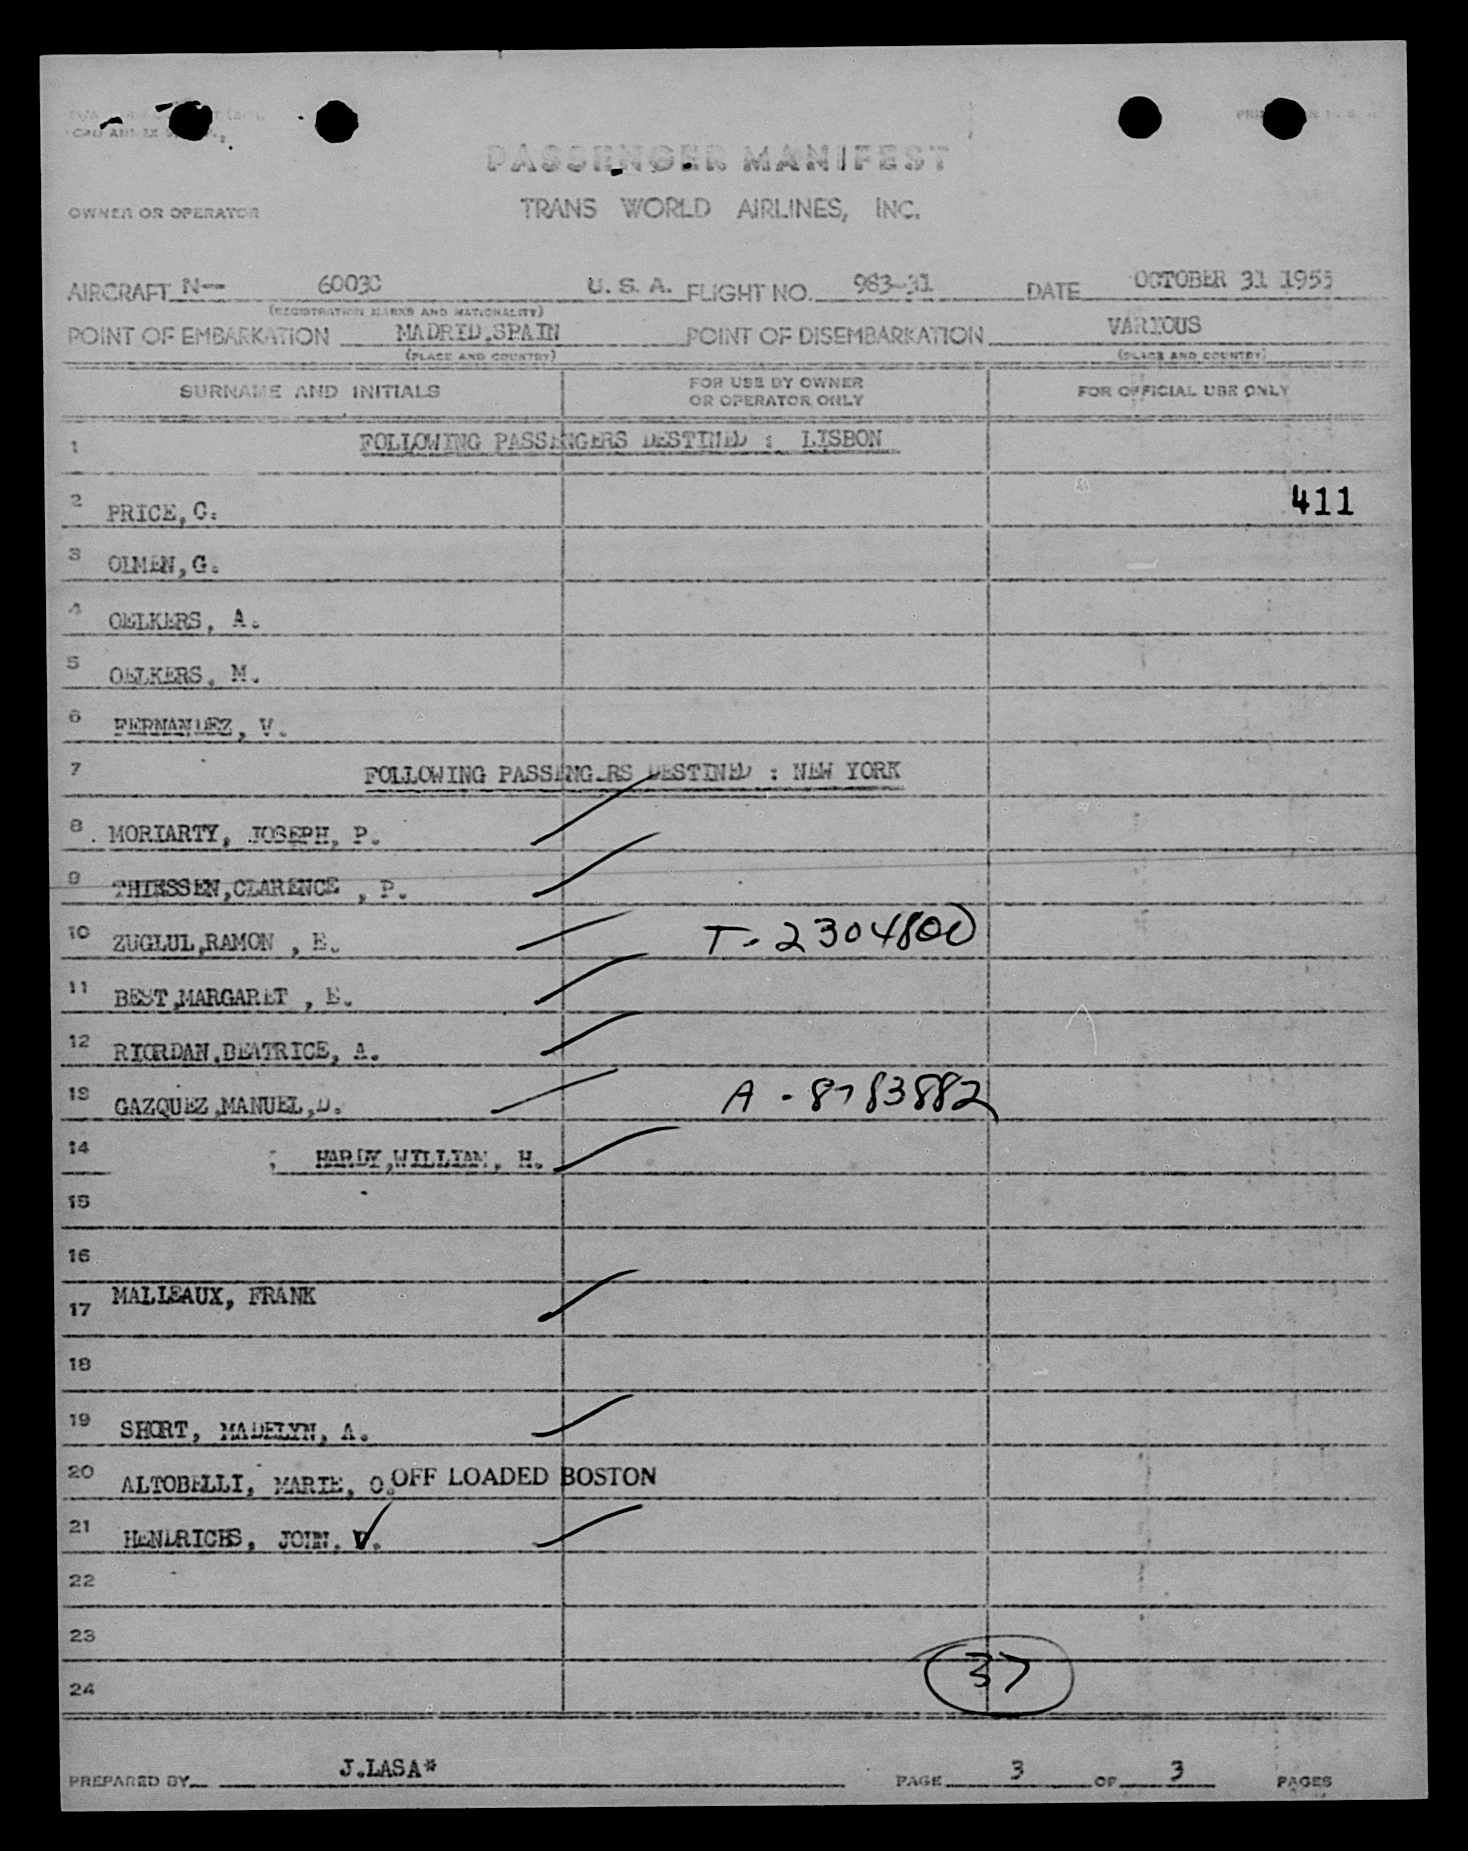 PASSENGER MANIFEST
OWNER OR OPERATOR TRANS WORLD AIRLINES, INC.
AIRCRAFT N-- 6003C U. S. A. FLIGHT NO. 983-31 DATE OCTOBER 31 1955
(REGISTRATION MARKS AND NATIONALITY)
POINT OF EMBARKATION MADRID,SPAIN POINT OF DISEMBARKATION VARIOUS
(PLACE AND COUNTRY) (PLACE AND COUNTRY)
SURNAME AND INITIALS FOR USE BY OWNER OR OPERATOR ONLY FOR OFFICIAL USE ONLY
1 FOLLOWING PASSENGERS DESTINED : LISBON
2 PRICE, C. 411
3 OLMEN, G.
4 OELKERS, A.
5 OELKERS, M.
6 FERNANDEZ, V.
7 FOLLOWING PASSENGERS DESTINED : NEW YORK
8 MORIARTY, JOSEPH, P.
9 THIESSEN,CLARENCE , P.
10 ZUGLUL,RAMON , E. T-2304800
11 BEST,MARGARET , E.
12 RIORDAN,BEATRICE, A.
13 GAZQUEZ,MANUEL,D. A-8783882
14 HARDY,WILLIAM, H.
15
16
17 MALLEAUX, FRANK
18
19 SHORT, MADELYN, A.
20 ALTOBELLI, MARIE, O. OFF LOADED BOSTON
21 HENDRICHS, JOHN, V.
22
23
24 37
PREPARED BY J.LASA* PAGE 3 OF 3 PAGES